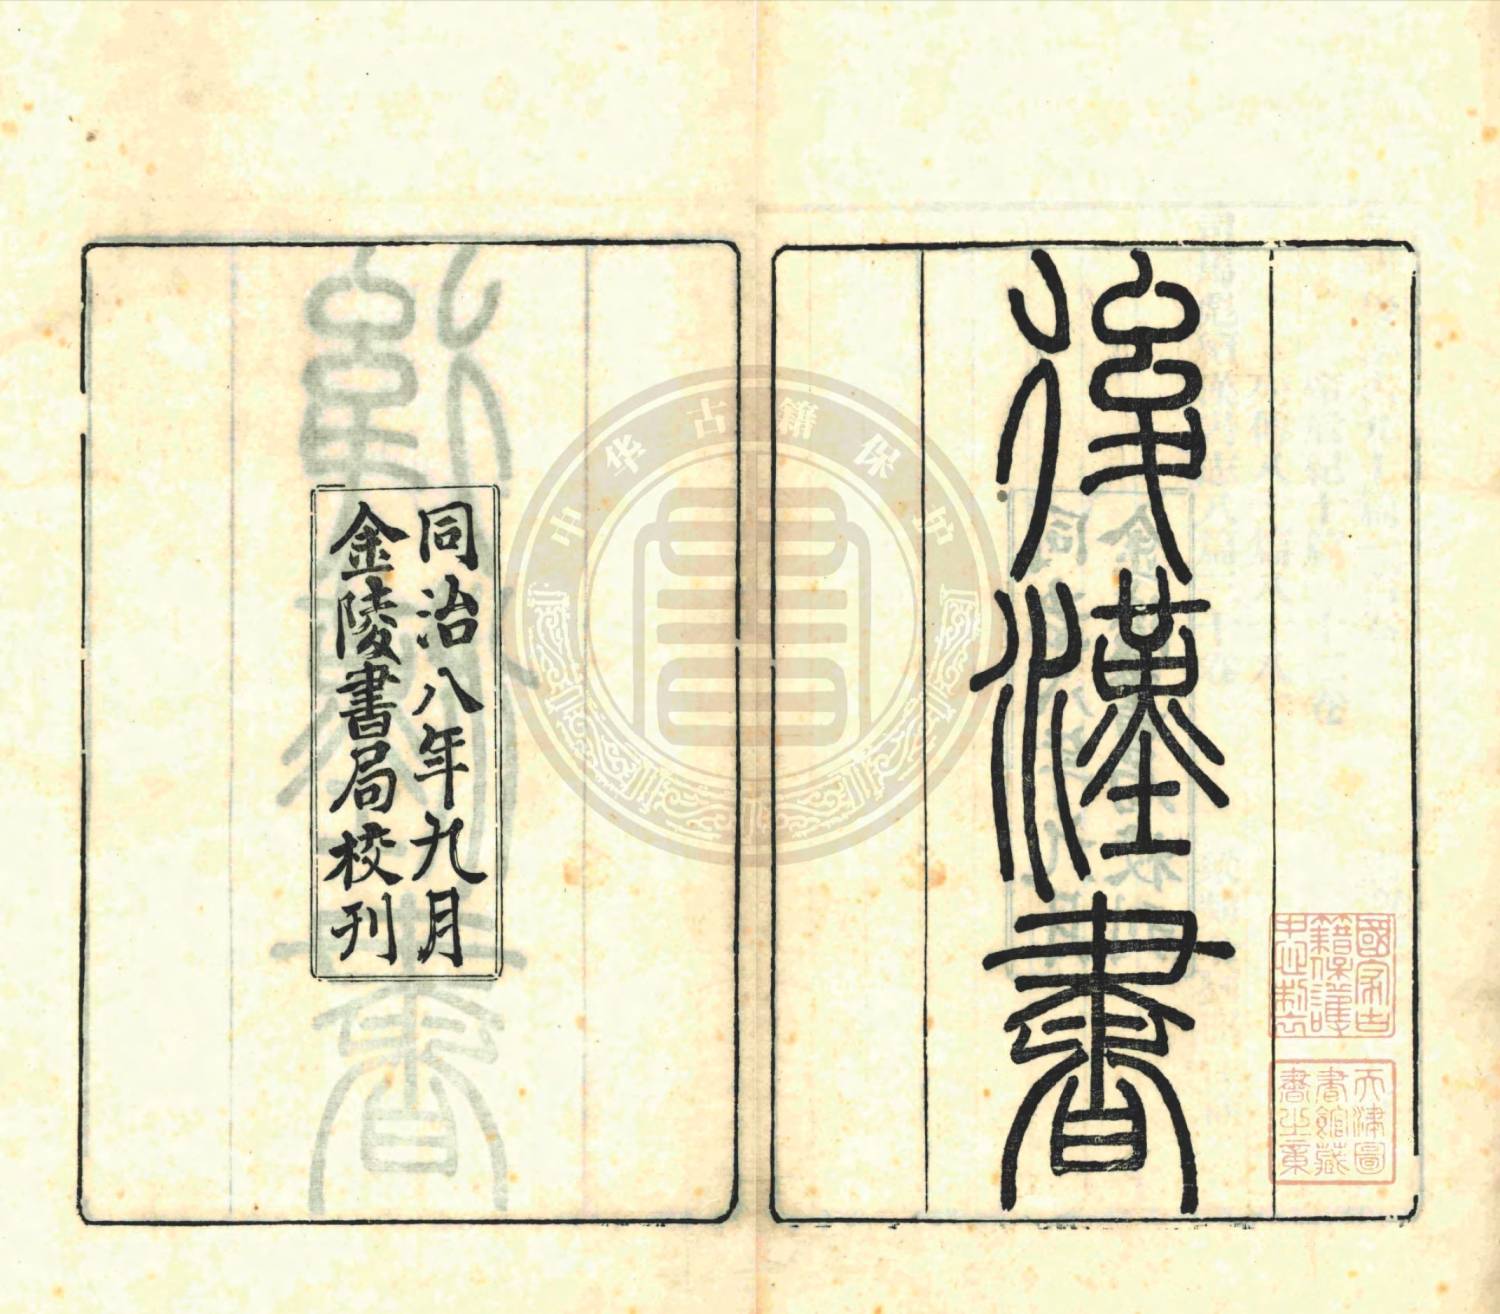 後漢書
同治八年九月
金陵書局校刊
中华古籍保护
國家古
籍保護
中心制
天津圖
書館藏
書之章